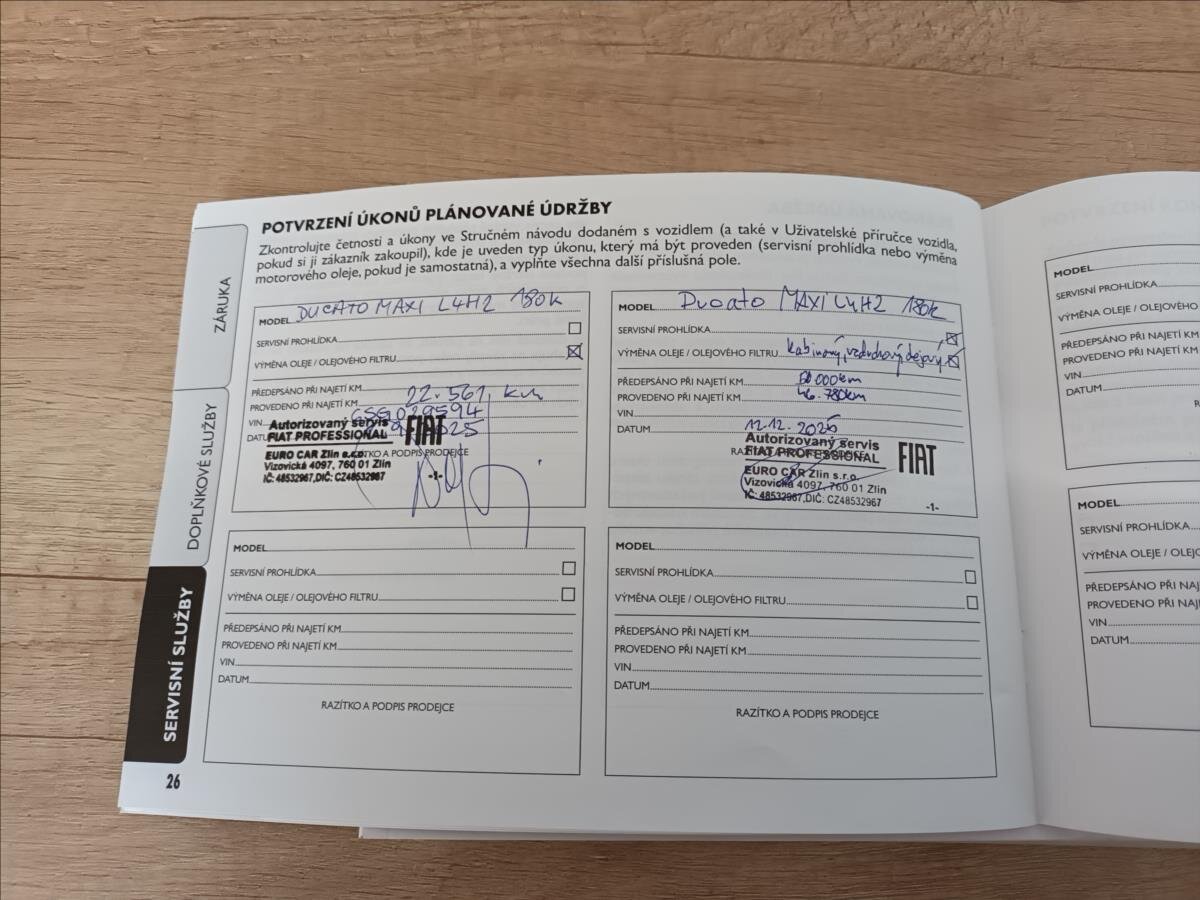 POTVRZENÍ ÚKONŮ PLÁNOVANÉ ÚDRŽBY
Zkontrolujte četnosti a úkony ve Stručném návodu dodaném s vozidlem (a také v Uživatelské příručce vozidla,
pokud si ji zákazník zakoupil), kde je uveden typ úkonu, který má být proveden (servisní prohlídka nebo výměna
motorového oleje, pokud je samostatná), a vyplňte všechna další příslušná pole.
ZÁRUKA
DOPLŇKOVÉ SLUŽBY
SERVISNÍ SLUŽBY
MODEL DUCATO MAXI L4H2 180k
SERVISNÍ PROHLÍDKA
VÝMĚNA OLEJE / OLEJOVÉHO FILTRU
PŘEDEPSÁNO PŘI NAJETÍ KM
PROVEDENO PŘI NAJETÍ KM 22.561 km
VIN
Autorizovaný servis
FIAT PROFESSIONAL
FIAT
EURO CAR Zlín s.r.o.
A PODPIS PRODEJCE
Vizovická 4097, 760 01 Zlín
IČ: 48532967, DIČ: CZ48532967
-1-
MODEL Ducato MAXI L4H2 180k
SERVISNÍ PROHLÍDKA
VÝMĚNA OLEJE / OLEJOVÉHO FILTRU kabinový, vzduchový,
PŘEDEPSÁNO PŘI NAJETÍ KM 000km
PROVEDENO PŘI NAJETÍ KM 46.780km
VIN
DATUM 12.12.
Autorizovaný servis
FIAT PROFESSIONAL
FIAT
EURO CAR Zlín s.r.o.
Vizovická 4097, 760 01 Zlín
IČ: 48532967, DIČ: CZ48532967
-1-
MODEL
SERVISNÍ PROHLÍDKA
VÝMĚNA OLEJE / OLEJOVÉHO FILTRU
PŘEDEPSÁNO PŘI NAJETÍ KM
PROVEDENO PŘI NAJETÍ KM
VIN
DATUM
RAZÍTKO A PODPIS PRODEJCE
MODEL
SERVISNÍ PROHLÍDKA
VÝMĚNA OLEJE / OLEJOVÉHO FILTRU
PŘEDEPSÁNO PŘI NAJETÍ KM
PROVEDENO PŘI NAJETÍ KM
VIN
DATUM
RAZÍTKO A PODPIS PRODEJCE
26
MODEL
SERVISNÍ PROHLÍDKA
VÝMĚNA OLEJE / OLEJOVÉHO
PŘEDEPSÁNO PŘI NAJETÍ KM
PROVEDENO PŘI NAJETÍ KM
VIN
DATUM
MODEL
SERVISNÍ PROHLÍDKA
VÝMĚNA OLEJE /
PŘEDEPSÁNO PŘI
PROVEDENO PŘI
VIN
DATUM